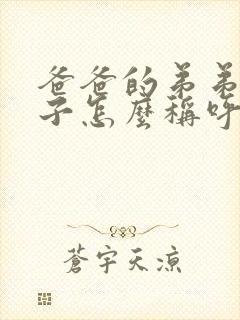 爸爸的弟弟
子怎麼稱呼
蒼宇天涼